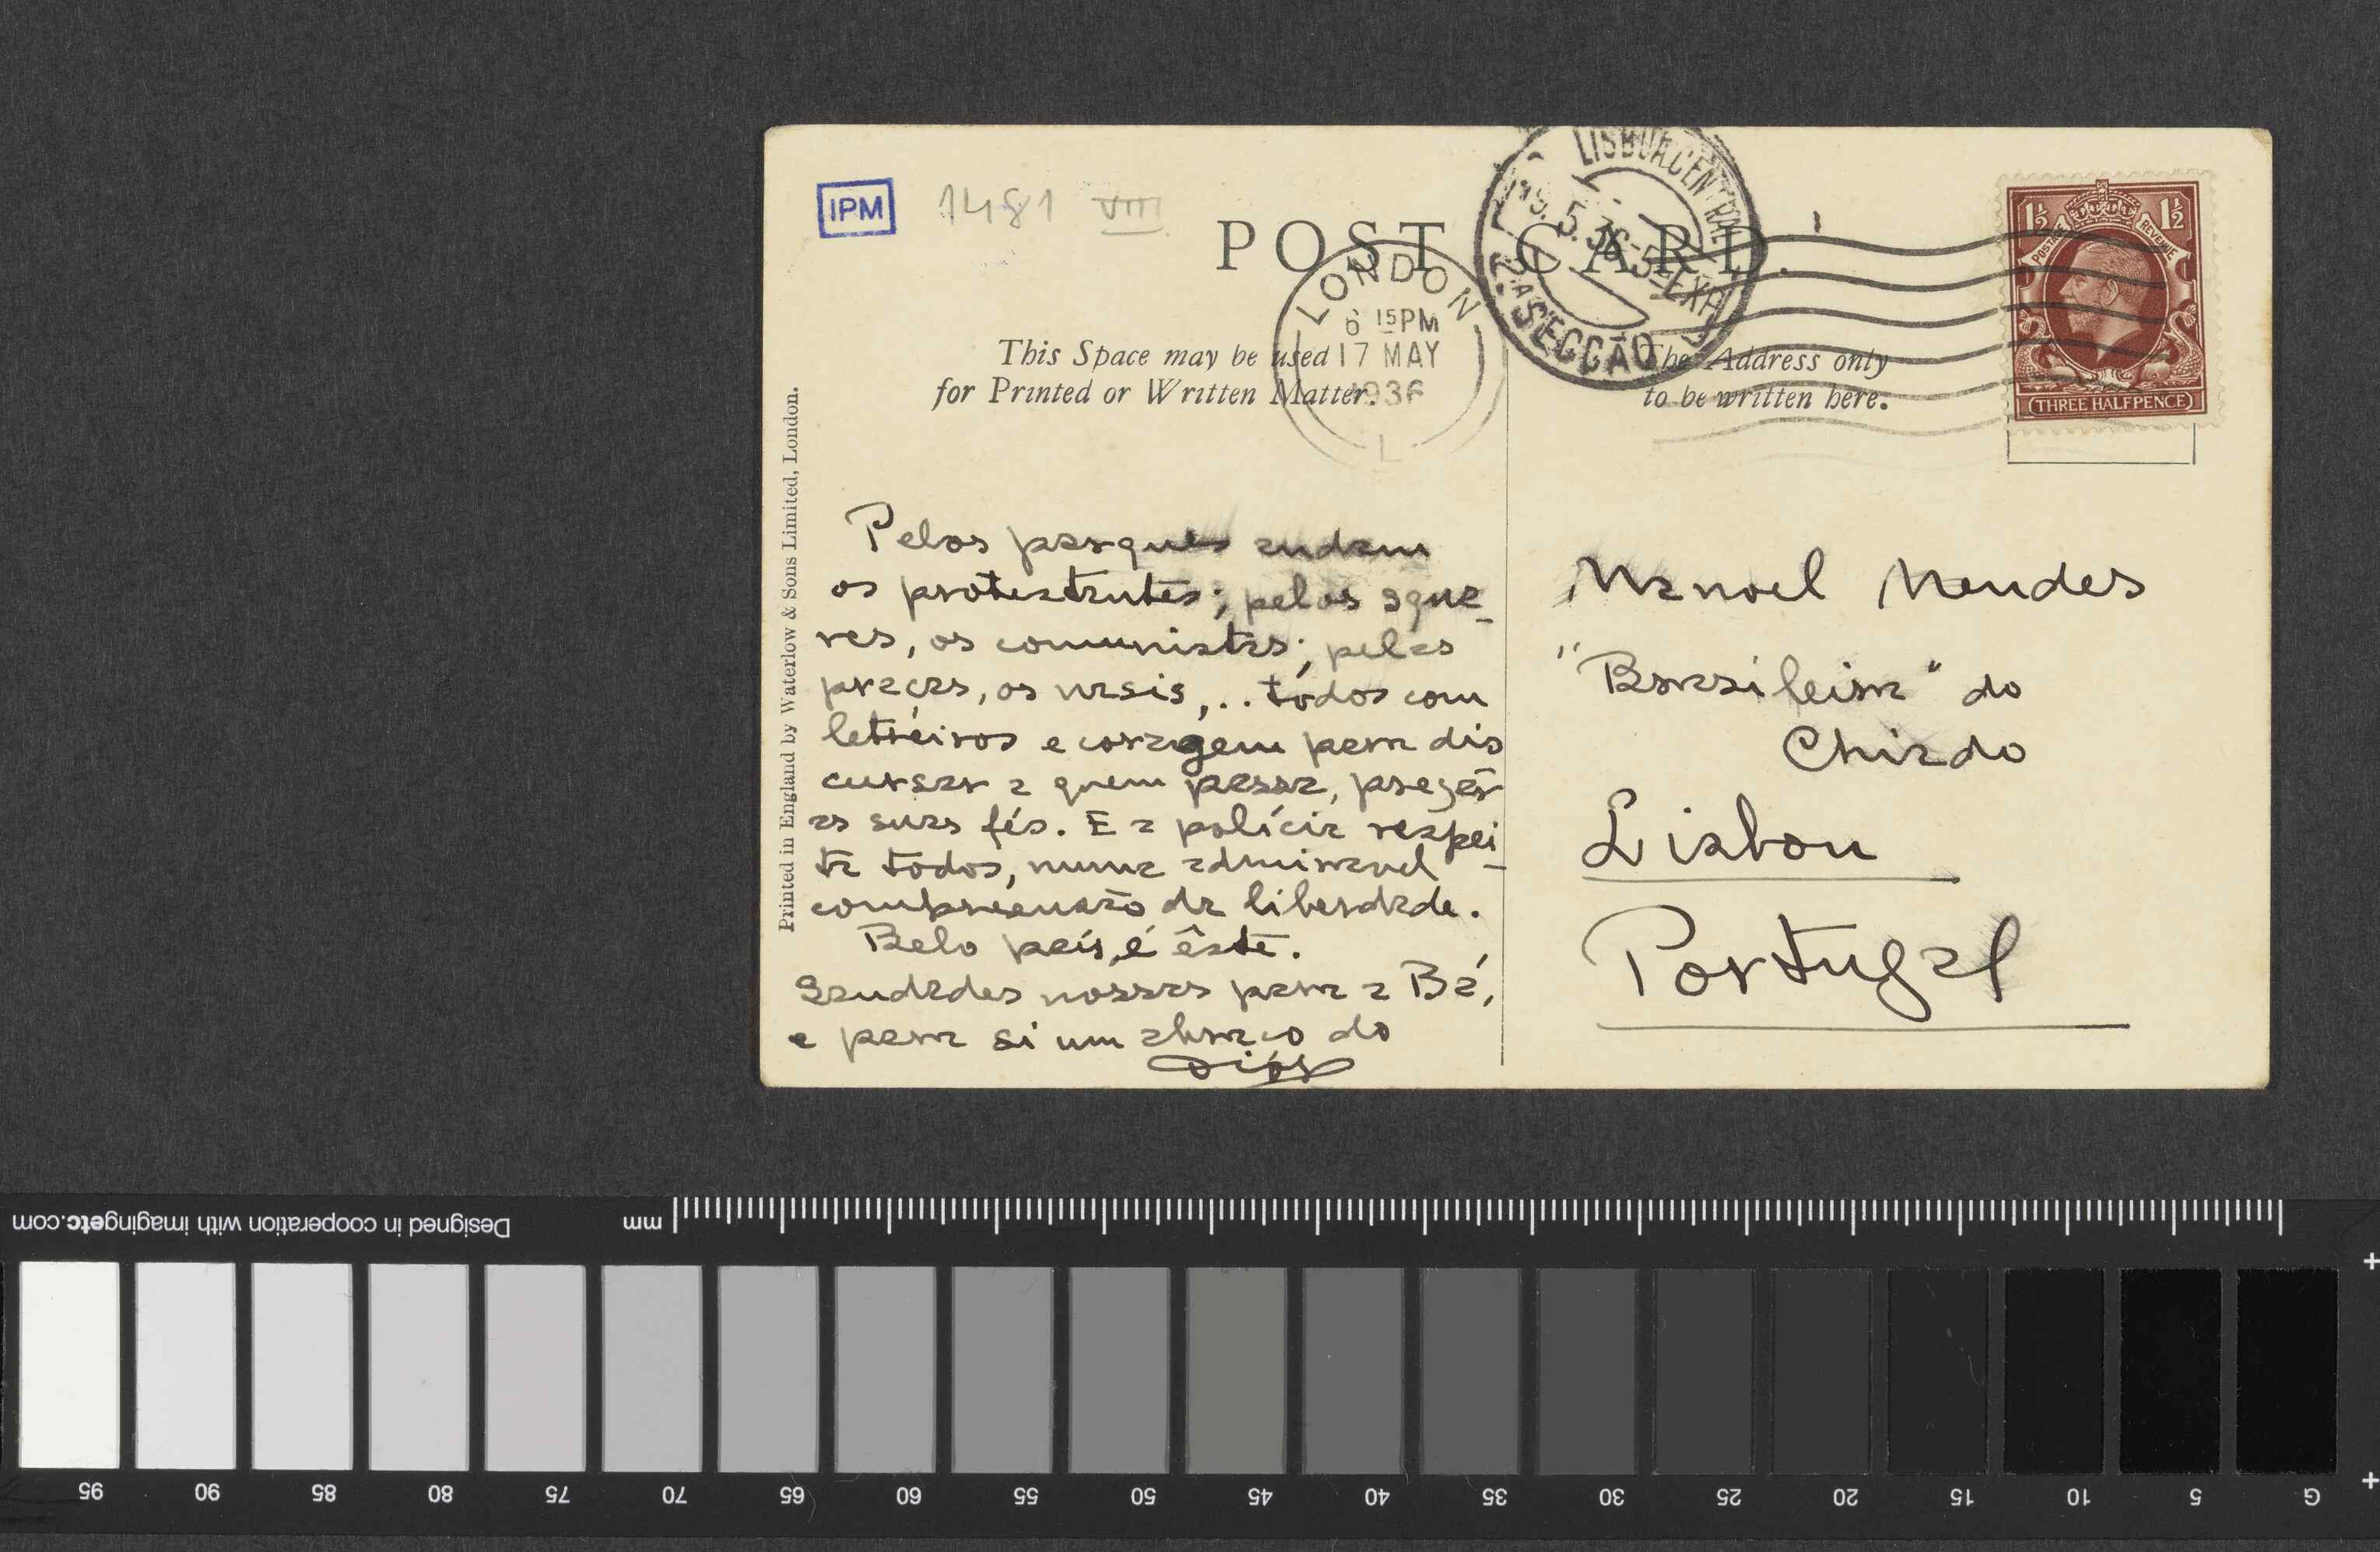 IPM 1481 VIII
POST CARD.
LISBOA CENTRAL
19.5.36-5-EXP
2.ª SECÇÃO
LONDON
6 15PM
17 MAY
1936
L
1½ 1½
POSTAGE REVENUE
THREE HALFPENCE
This Space may be used
for Printed or Written Matter.
The Address only
to be written here.
Printed in England by Waterlow & Sons Limited, London.
Pelos parques andam
os protestantes; pelos squa-
res, os comunistas; pelas
praças, os nasis,.. tôdos com
letreiros e coragem para dis
cursar a quem passa, pregar
as suas fés. E a polícia respei-
ta todos, numa admiravel
compreensão da liberdade.
Belo país, é êste.
Saudades nossas para a Bá,
e para si um abraço do
Manoel Mendes
"Brasileira" do
Chiado
Lisbon
Portugal
Designed in cooperation with imagingetc.com
mm
95 90 85 80 75 70 65 60 55 50 45 40 35 30 25 20 15 10 5 G